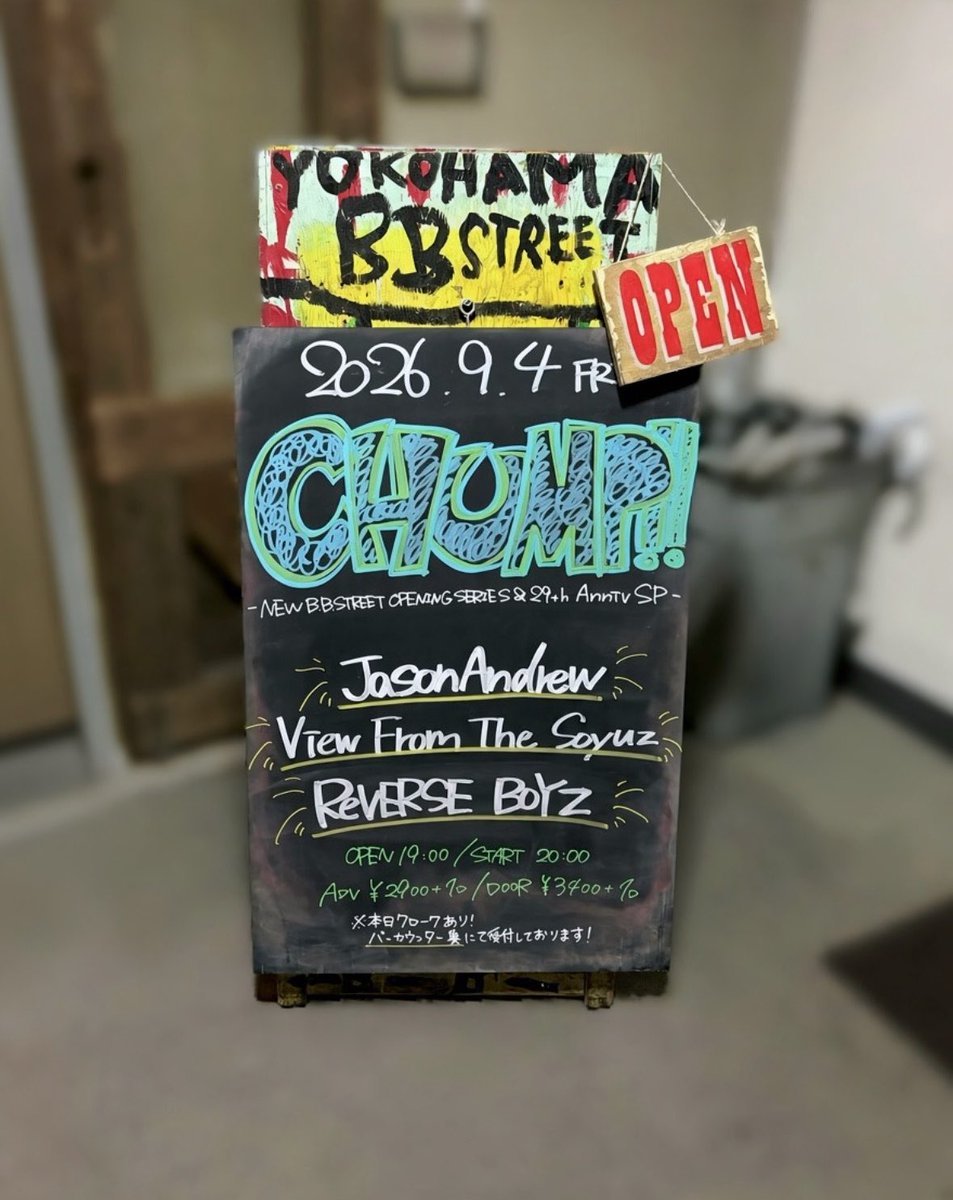 YOKOHAMA
BB STREET
OPEN
2026.9.4 FR
CHUMP!!
- NEW B.B.STREET OPENING SERIES & 29th Anntv SP -
JasonAndrew
View From The Soyuz
ReVERSE BoYz
OPEN 19:00 / START 20:00
ADV ¥2900+1D / DOOR ¥3400+1D
※本日クロークあり!
バーカウンター奥にて受付しております!